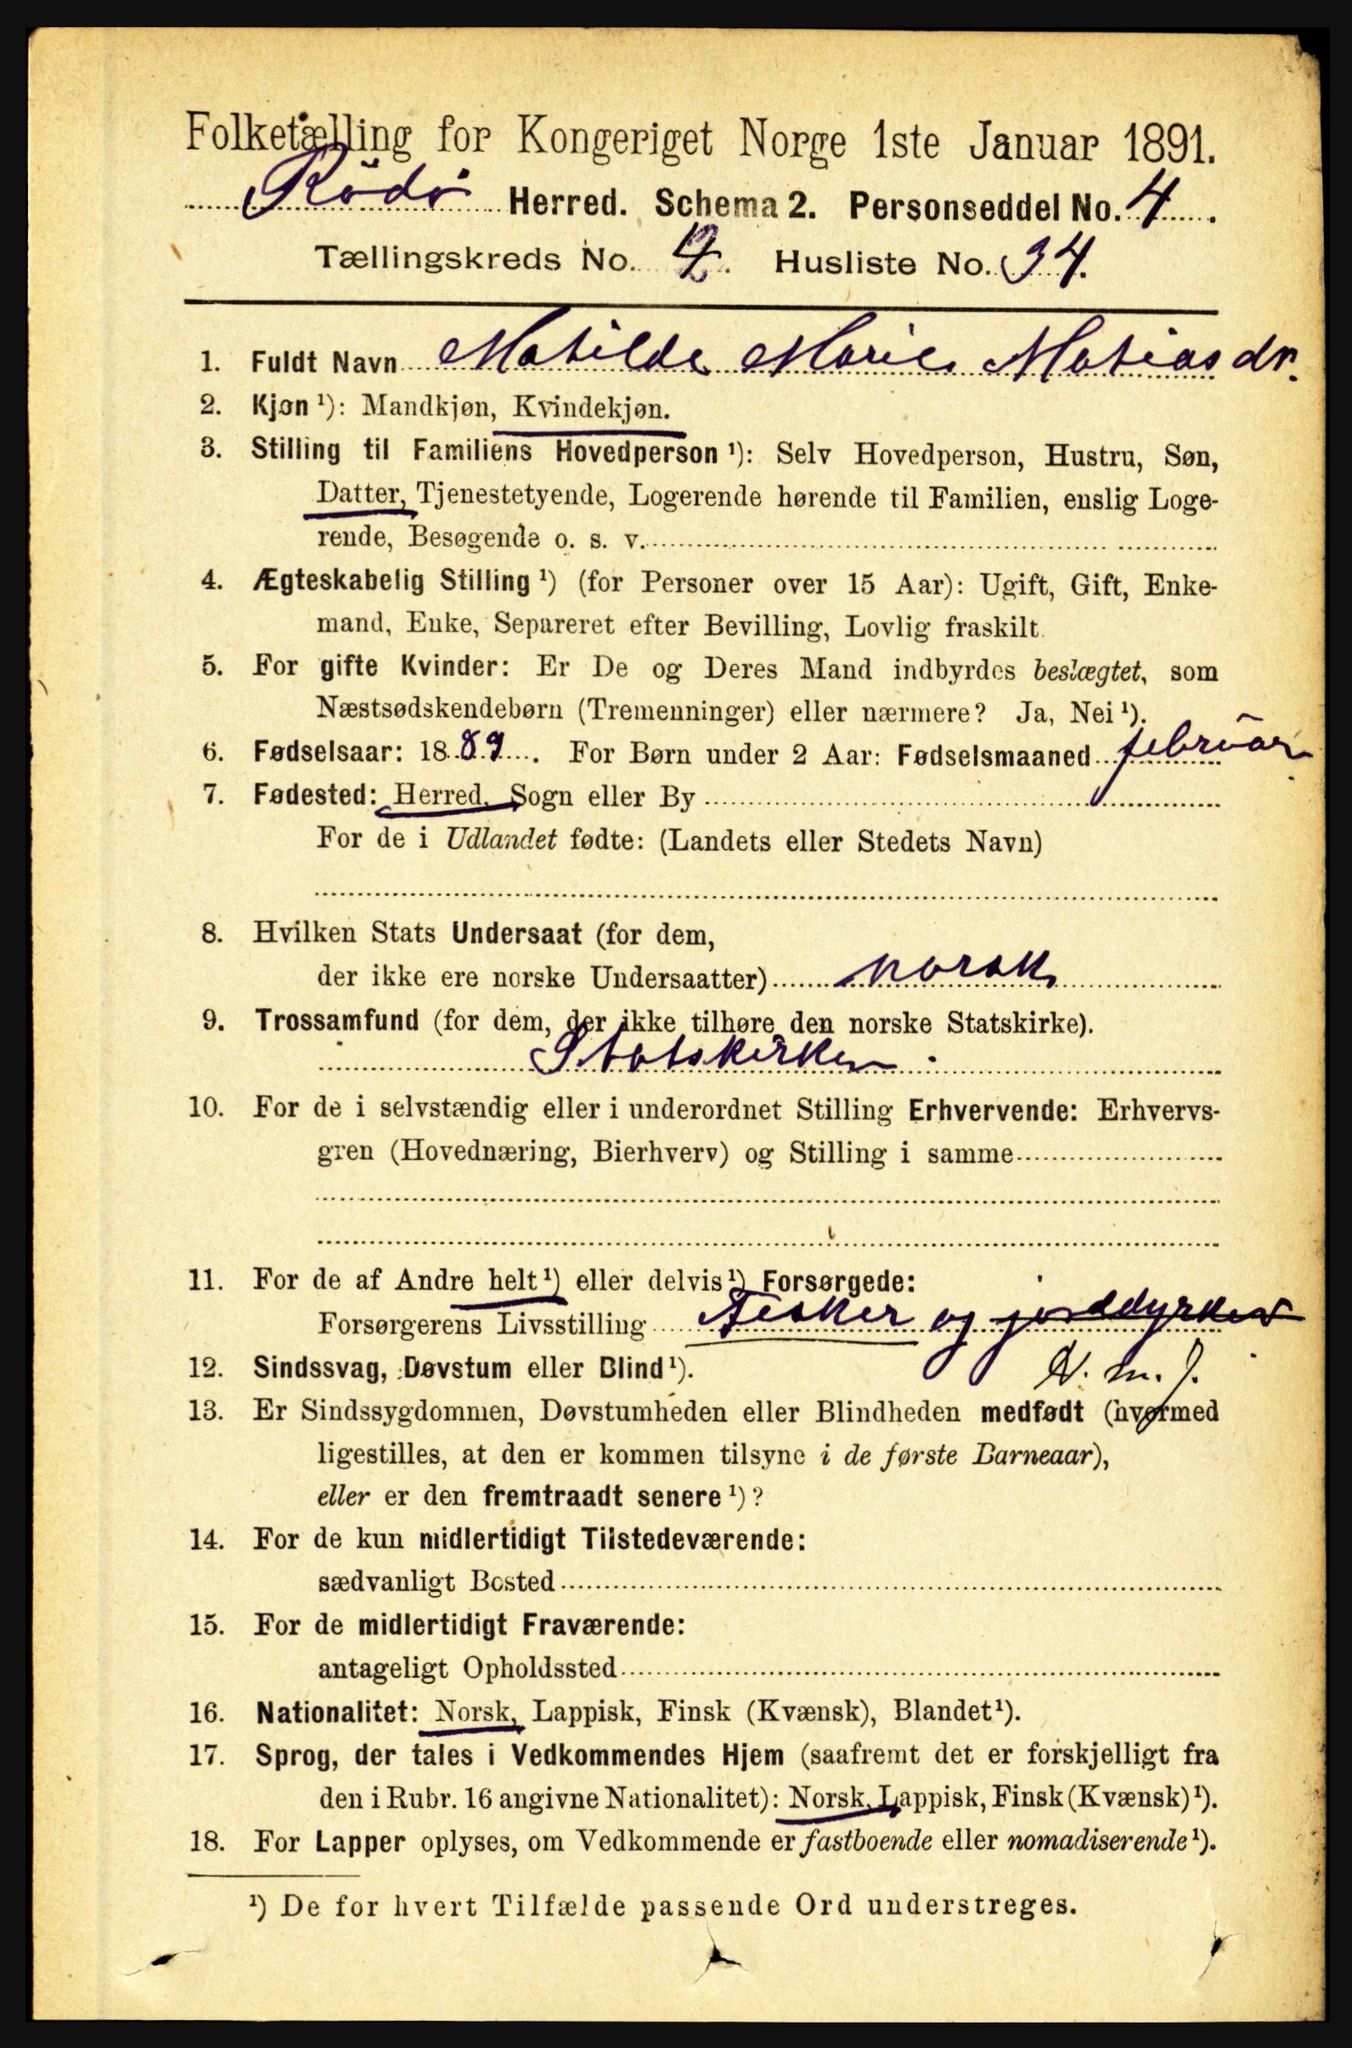 Folketælling for Kongeriget Norge 1ste Januar 1891.
Rödö Herred. Schema 2. Personseddel No. 4.
Tællingskreds No. 2. Husliste No. 34.
1. Fuldt Navn Matilde Marie Matias dr.
2. Kjøn ¹): Mandkjøn, Kvindekjøn.
3. Stilling til Familiens Hovedperson ¹): Selv Hovedperson, Hustru, Søn,
Datter, Tjenestetyende, Logerende hørende til Familien, enslig Loge-
rende, Besøgende o. s. v.
4. Ægteskabelig Stilling ¹) (for Personer over 15 Aar): Ugift, Gift, Enke-
mand, Enke, Separeret efter Bevilling, Lovlig fraskilt.
5. For gifte Kvinder: Er De og Deres Mand indbyrdes beslægtet, som
Næstsødskendebørn (Tremenninger) eller nærmere? Ja, Nei ¹).
6. Fødselsaar: 1889. For Børn under 2 Aar: Fødselsmaaned februar
7. Fødested: Herred, Sogn eller By
For de i Udlandet fødte: (Landets eller Stedets Navn)
8. Hvilken Stats Undersaat (for dem,
der ikke ere norske Undersaatter) norsk
9. Trossamfund (for dem, der ikke tilhøre den norske Statskirke).
Statskirken
10. For de i selvstændig eller i underordnet Stilling Erhvervende: Erhvervs-
gren (Hovednæring, Bierhverv) og Stilling i samme
11. For de af Andre helt ¹) eller delvis ¹) Forsørgede:
Forsørgerens Livsstilling Fisker og jorddyrker
N. m. J.
12. Sindssvag, Døvstum eller Blind ¹).
13. Er Sindssygdommen, Døvstumheden eller Blindheden medfødt (hvormed
ligestilles, at den er kommen tilsyne i de første Barneaar),
eller er den fremtraadt senere ¹)?
14. For de kun midlertidigt Tilstedeværende:
sædvanligt Bosted
15. For de midlertidigt Fraværende:
antageligt Opholdssted
16. Nationalitet: Norsk, Lappisk, Finsk (Kvænsk), Blandet ¹).
17. Sprog, der tales i Vedkommendes Hjem (saafremt det er forskjelligt fra
den i Rubr. 16 angivne Nationalitet): Norsk, Lappisk, Finsk (Kvænsk) ¹).
18. For Lapper oplyses, om Vedkommende er fastboende eller nomadiserende ¹).
¹) De for hvert Tilfælde passende Ord understreges.